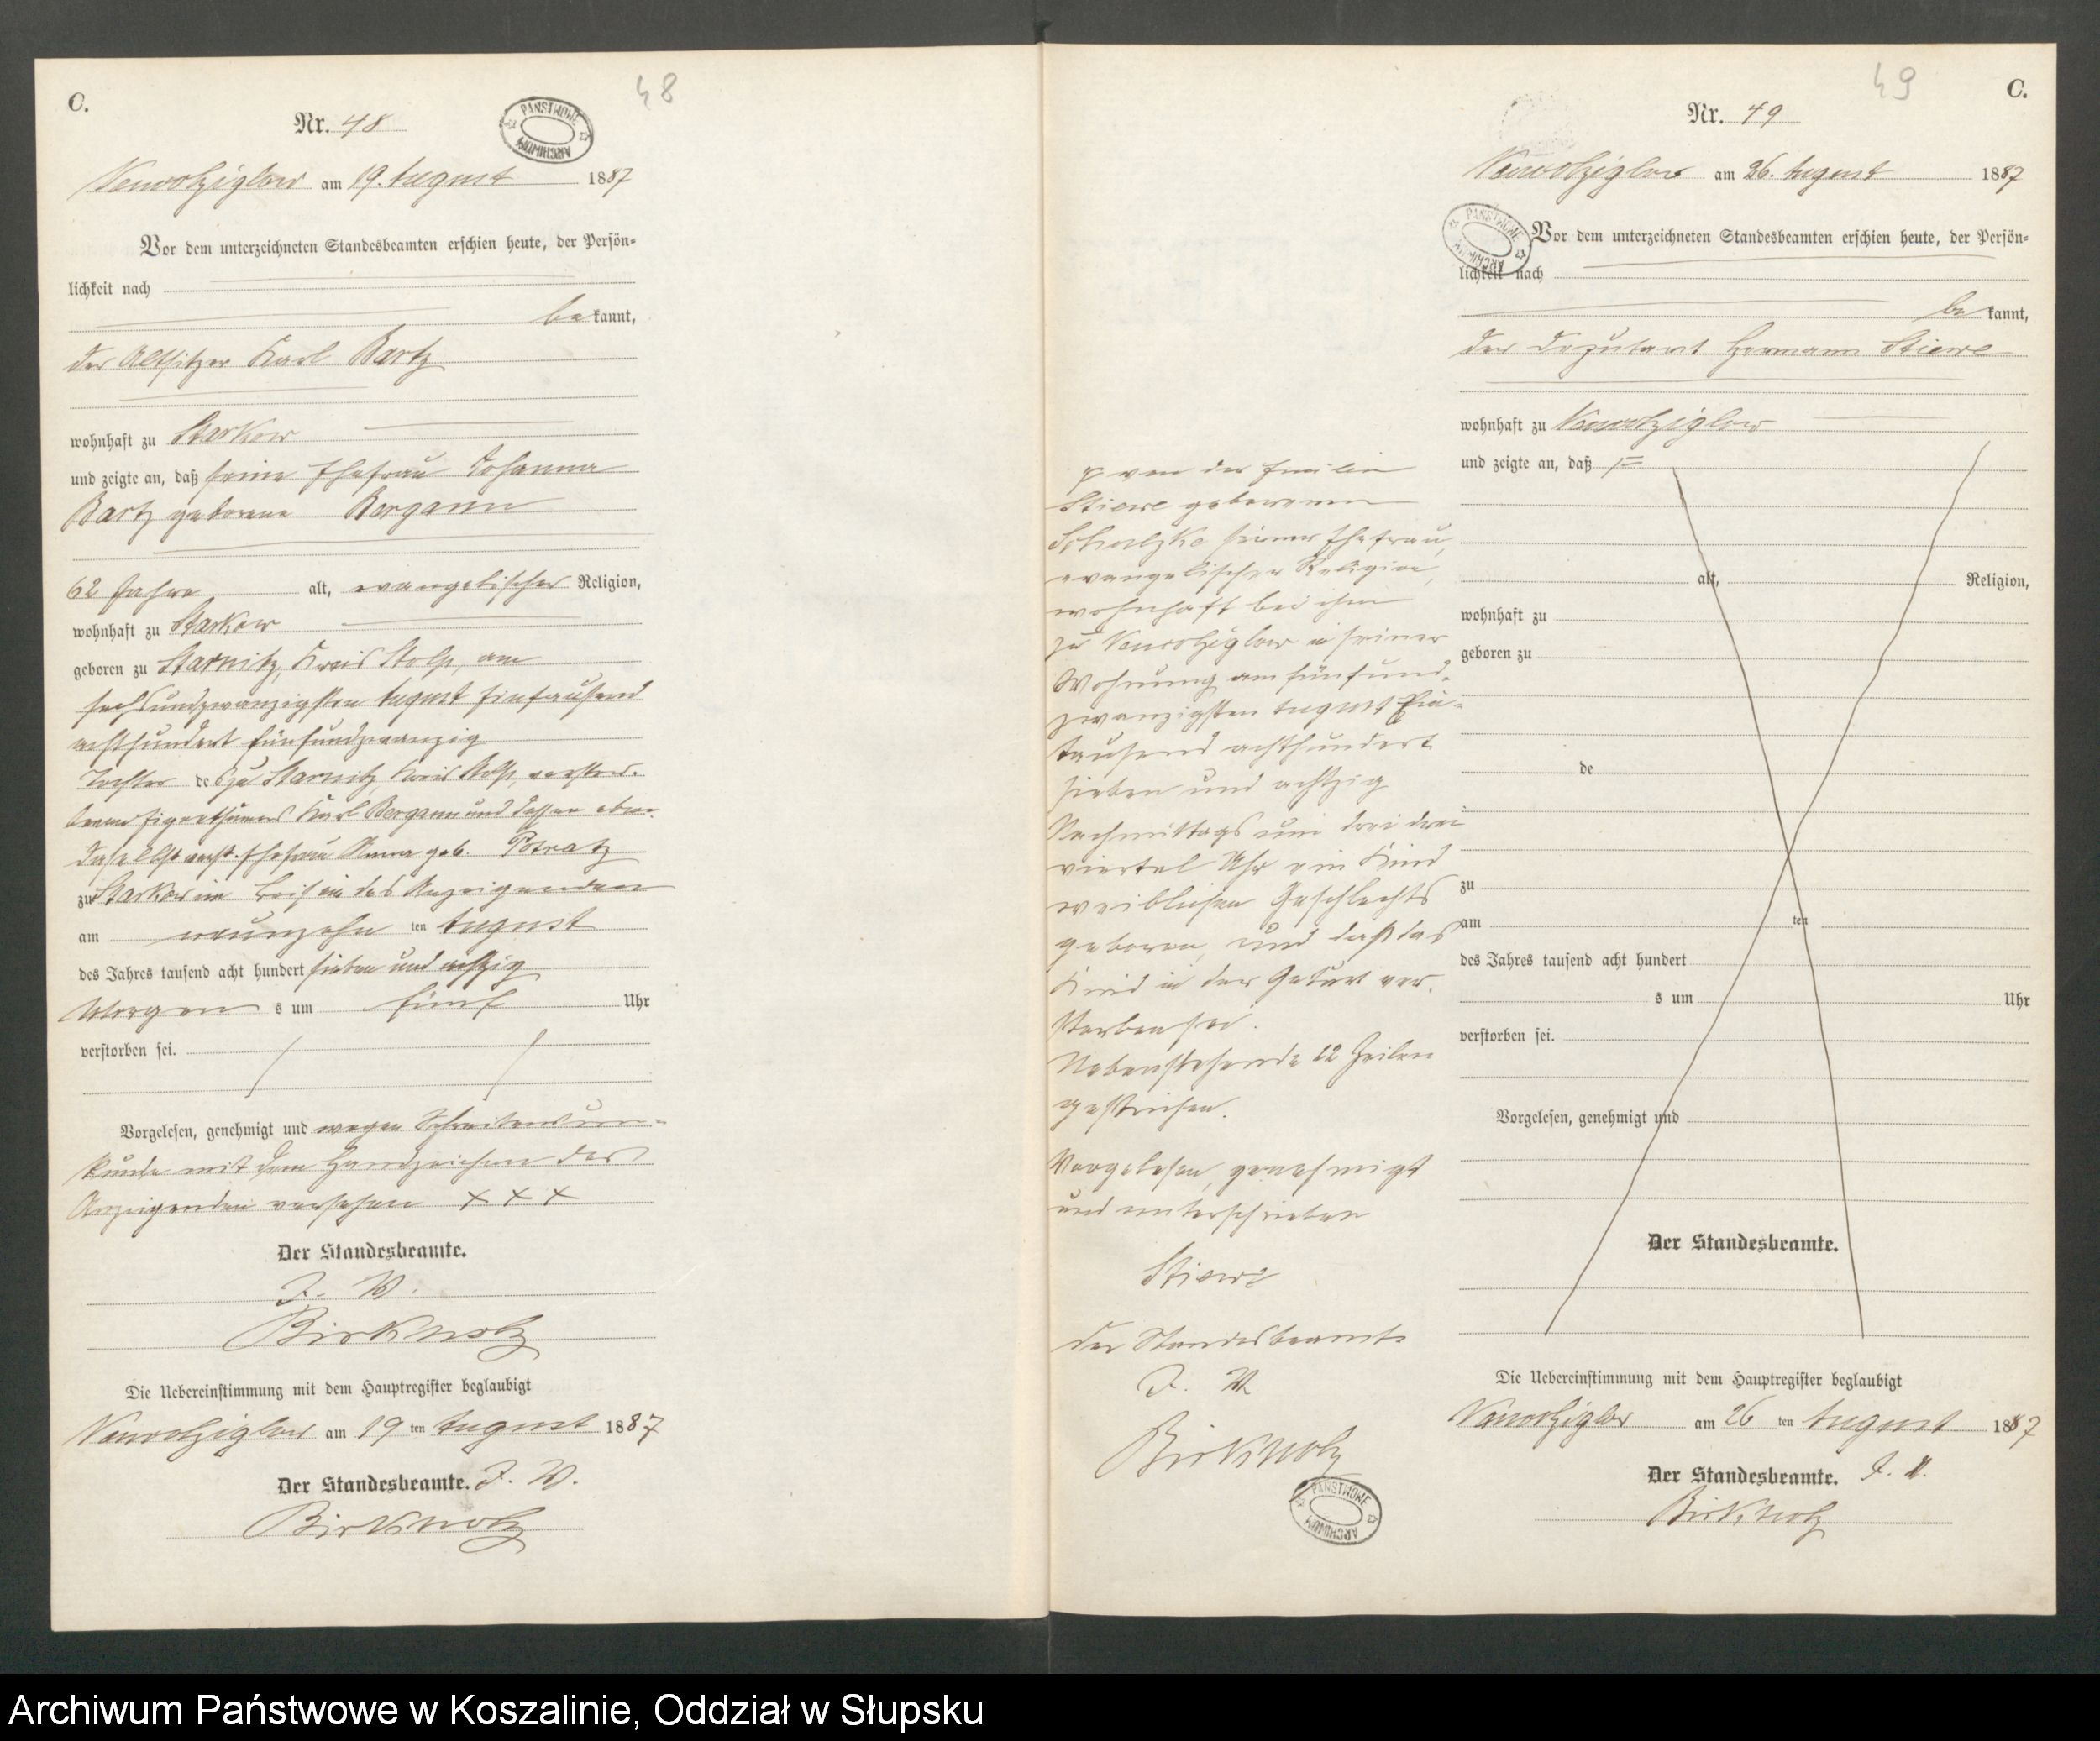 C.
48
Nr. 48
PANSTWOWE ARCHIWUM
Neuwolziglow am 19. August 1887
Vor dem unterzeichneten Standesbeamten erschien heute, der Persön-
lichkeit nach
bekannt,
der Altsitzer Karl Bartz
wohnhaft zu Starkow
und zeigte an, daß seine Ehefrau Johanna
Bartz geborene Bergann
62 Jahre alt, evangelischer Religion,
wohnhaft zu Starkow
geboren zu Starnitz, Kreis Stolp, am
sechsundzwanzigsten August Eintausend
achthundert fünfundzwanzig
Tochter des zu Starnitz, Kreis Stolp, verstor-
benen Eigenthümers Karl Bergann und dessen eben-
daselbst verst. Ehefrau Anna geb. Potratz
zu Starkow im Beisein des Anzeigenden
am neunzehn ten August
des Jahres tausend acht hundert sieben und achtzig
Morgens um fünf Uhr
verstorben sei.
Vorgelesen, genehmigt und wegen Schreibensun-
kunde mit dem Handzeichen des
Anzeigenden versehen + + +
Der Standesbeamte.
J. V.
Birkholz
Die Uebereinstimmung mit dem Hauptregister beglaubigt
Neuwolziglow am 19 ten August 1887
Der Standesbeamte. J. V.
Birkholz
49
C.
Nr. 49
Neuwolziglow am 26. August 1887
PANSTWOWE ARCHIWUM
Vor dem unterzeichneten Standesbeamten erschien heute, der Persön-
lichkeit nach
bekannt,
der Deputant Hermann Stiewe
wohnhaft zu Neuwolziglow
und zeigte an, daß
alt, Religion,
wohnhaft zu
geboren zu
de
zu
am ten
des Jahres tausend acht hundert
s um Uhr
verstorben sei.
Vorgelesen, genehmigt und
Der Standesbeamte.
von der Emilie
Stiewe geborenen
seiner Ehefrau,
evangelischer Religion,
wohnhaft bei ihm
zu Neuwolziglow in seiner
Wohnung am fünfund-
zwanzigsten August Ein-
tausend achthundert
sieben und achtzig
Nachmittags um drei drei
viertel Uhr ein Kind
weiblichen Geschlechts
geboren, und daß das
Kind in der Geburt ver-
storben sei.
Nebenstehende 12 Zeilen
gestrichen.
Vorgelesen, genehmigt
und unterschrieben
Stiewe
Der Standesbeamte
J. V.
Birkholz
PANSTWOWE ARCHIWUM
Die Uebereinstimmung mit dem Hauptregister beglaubigt
Neuwolziglow am 26 ten August 1887
Der Standesbeamte. J. V.
Birkholz
Archiwum Państwowe w Koszalinie, Oddział w Słupsku